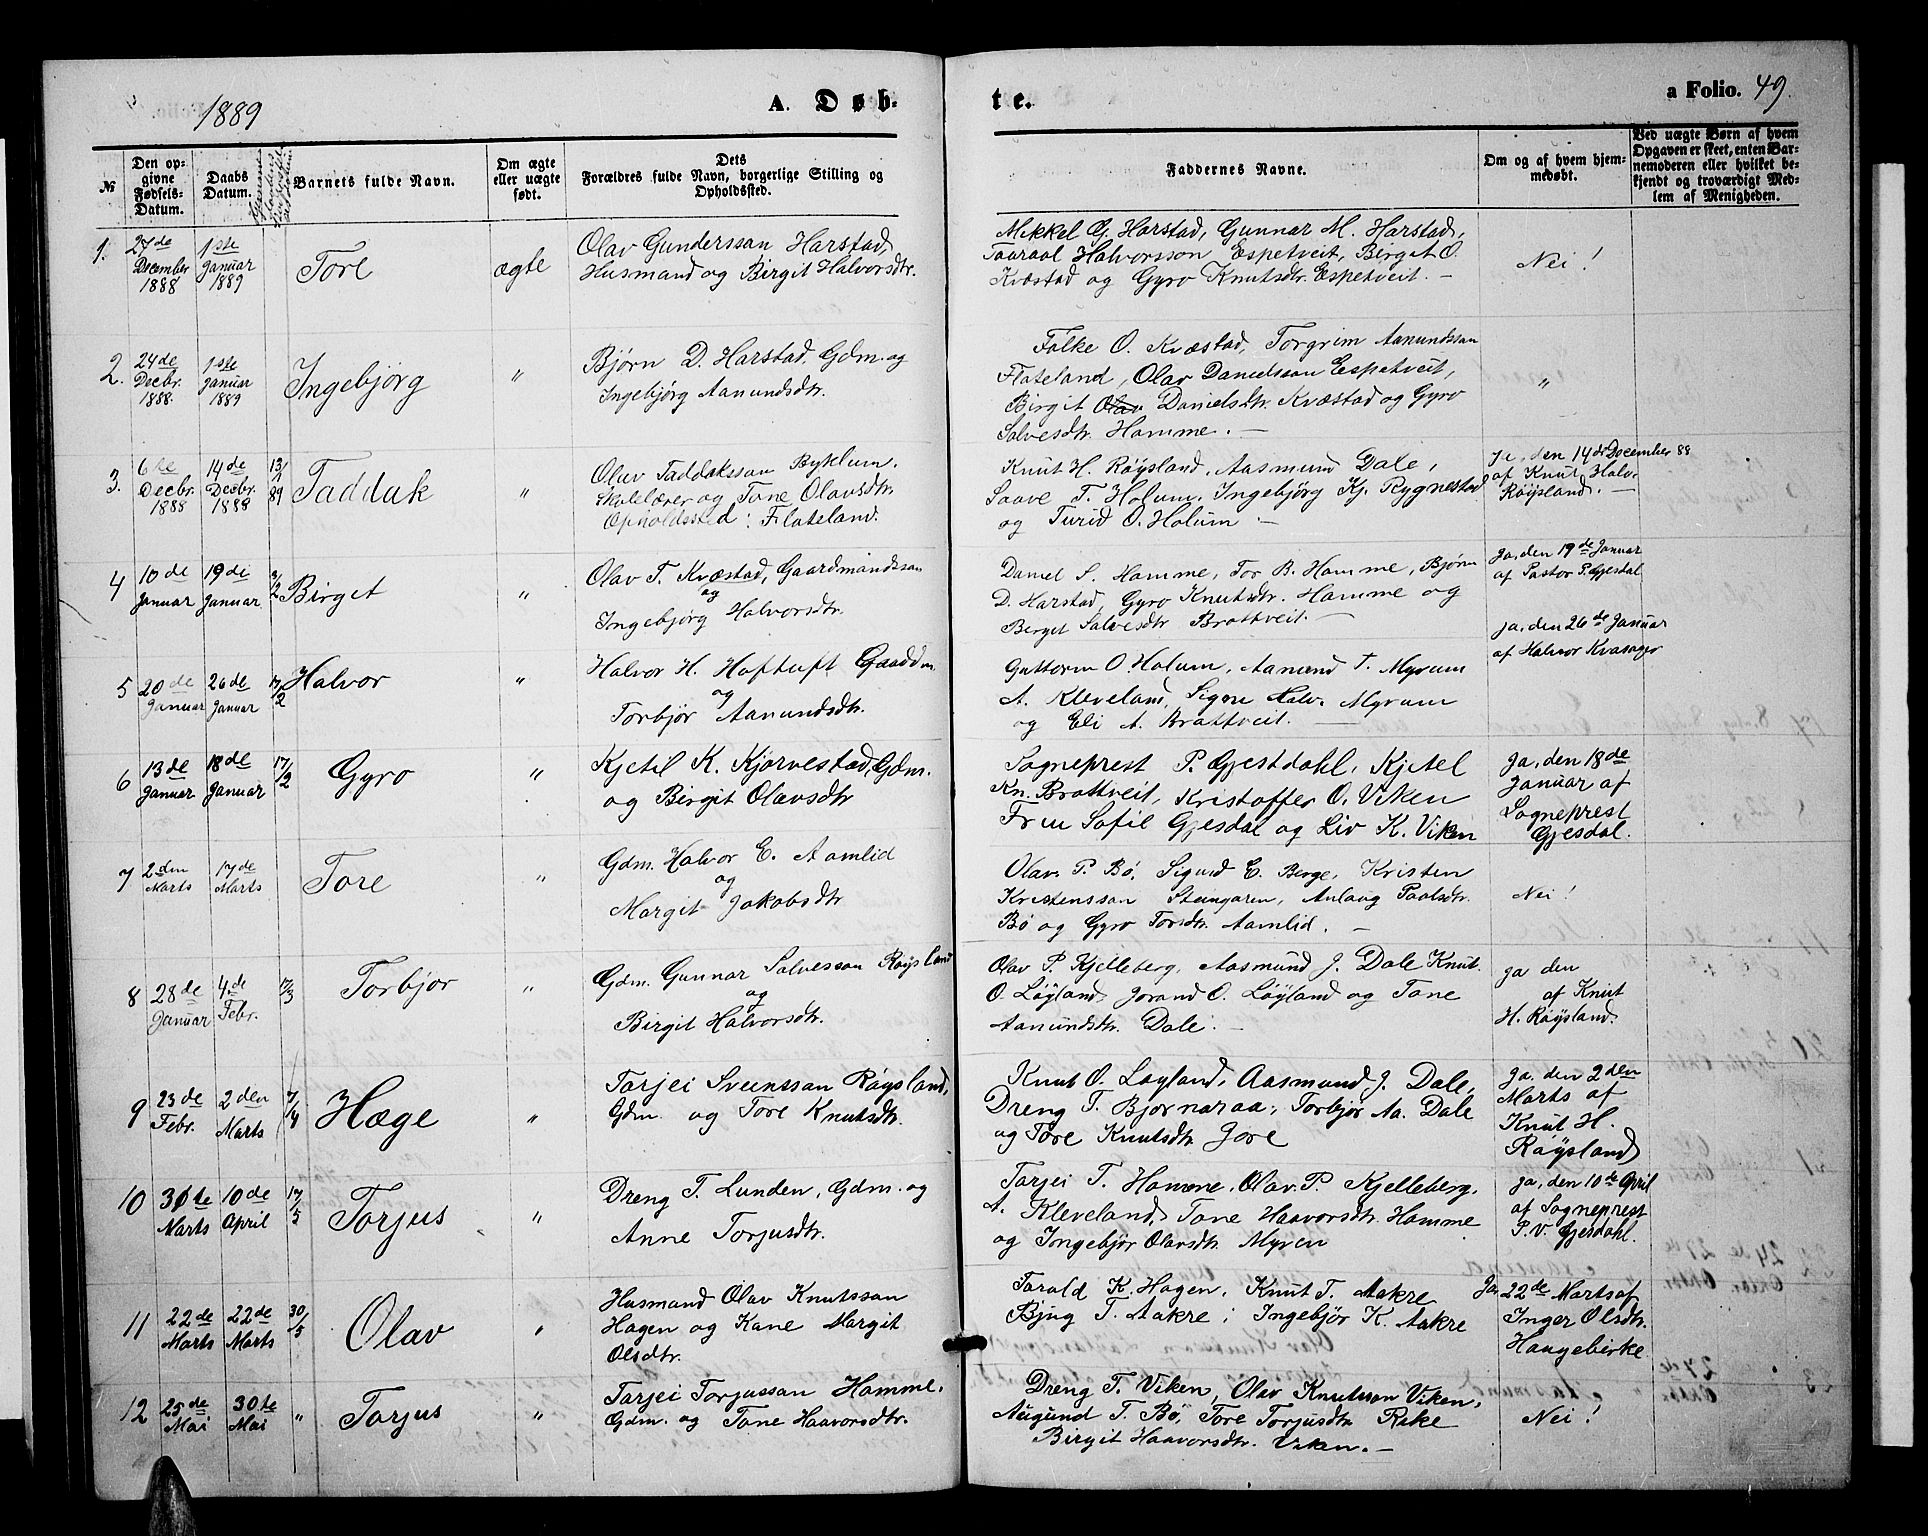 1889
A. Døb-
te.
a Folio. 49.
№
Den op-
givne
Fødsels-
Datum.
Daabs
Datum.
Barnets fulde Navn.
Om ægte
eller uægte
født.
Dets
Forældres fulde Navn, borgerlige Stilling og
Opholdssted.
Faddernes Navne.
Om og af hvem hjem-
medøbt.
Ved uægte Børn af hvem
Opgaven er skeet, enten Bar-
nemoderen eller hvilket be-
kjendt og troværdigt Med-
lem af Menigheden.
1.
27de
December
1888
1ste
Januar
1889
Tore
ægte
Olav Gunderssan Harstad,
Husmand og Birgit Halvorsdtr.
Mikkel G. Harstad, Gunnar M. Harstad,
Taaraal Halvorsson Espetveit, Birgit O.
Kvæstad og Gyro Knutsdtr. Espetveit. —
Nei!
2.
24de
Decbr.
1888.
1ste
Januar
1889
Ingebjørg
"
Bjørn D. Harstad, Gdm. og
Ingebjørg Aanundsdtr.
Folke O. Kvæstad, Torgrim Aanundssan
Flateland, Olav Danielssan Espetveit,
Birgit Olav Danielsdtr. Kvæstad og Gyro
Salvesdtr. Homme. —
"
3.
6te
Decbr.
1888
14de
Decbr.
1888
13/1
89
Taddak
"
Olav Taddakssan Byklum.
Skolelærer og Tone Olavsdtr.
Opholdssted: Flateland.
Knut H. Røysland, Aasmund Dale,
Saave T. Holum, Ingebjørg Kj. Rygnestad
og Turid O. Holum —
Ja, den 14de December 88
af Knut Halv.
Røysland. —
4
10de
Januar
19de
Januar
3/2
Birgit
"
Olav T. Kvæstad, Gaardmandssan
og
Ingebjørg Halvorsdtr.
Daniel S. Homme, Tor B. Homme, Bjørn
D. Harstad, Gyro Knutsdtr. Homme og
Berget Salvesdtr Brottveit. —
Ja, den 19de Januar
af Pastor P. Gjesdal
5
20de
Januar
26de
Januar
17/2
Halvor
"
Halvor H. Hoftuft Gaadm.
og
Torbjør Aanundsdtr.
Guttorm O. Holum, Aanund T. Myrum
A. Kleveland, Signe Halv. Myrum
og Eli A. Brottveit. —
Ja, den 26de Januar
af Halvor Kvasager
6
13de
Januar
18de
Januar
17/2
Gyro
"
Kjetil K. Kjørvestad, Gdm.
og Birgit Olavsdtr
Sogneprest P. Gjesdahl, Kjetel
Kn. Brottveit, Kristoffer O. Viken
Fru Sofil Gjesdal og Liv K. Viken
Ja, den 18de
Januar af
Sogneprest
Gjesdal.
7
2den
Marts
17de
Marts
Tore
"
Gdm. Halvor E. Aamlid
og
Margit Jakobsdtr
Olav P. Bø, Sigurd E. Berge, Kristen
Kristenssan Steingaren, Anlaug Paalsdtr.
Bø og Gyro Torsdtr. Aamlid. —
Nei!
8
28de
Januar
4de
Febr.
17/3
Torbjør
"
Gdm. Gunnar Salvessan Røysland
og
Birgit Halvorsdtr.
Olav P. Kjelleberg, Aasmund J. Dale Knut
O. Løyland, Jorand O. Løyland og Tone
Aanundsdtr. Dale. —
Ja den
af Knut
H. Røysland.
9
23de
Febr.
2den
Marts
7/4
Hæge
"
Tarjei Sveinssan Røysland,
Gdm. og Tore Knutsdtr.
Knut O. Løyland, Aasmund J. Dale,
Dreng T. Bjørnaraa, Torbjør Aa. Dale
og Tore Knutsdtr. Jore
Ja, den 2den
Marts af
Knut H.
Røysland
10
30te
Marts
10de
April
17/5
Torjus
"
Dreng T. Lunden, Gdm. og
Anne Torjusdtr.
Tarjei T. Homme, Olav P. Kjelleberg,
A. Kleveland, Tone Haavorsdtr. Homme
og Ingebjør Olavsdtr. Myren
Ja, den 10de April
af Sogneprest
P. V. Gjesdahl.
11
22de
Marts
22de
Marts
30/5
Olav
"
Husmand Olav Knutssan
Hagen og Kone Margit
Olsdtr.
Tarald K. Hagen, Knut T. Aakre
Bjug T. Aakre, Ingebjør K. Aakre
Ja, 22de Marts af
Inger Olsdtr.
Haugebirke
12
25de
Mai
30te
Mai
"
Torjus
"
Tarjei Torjussan Homme,
Gdm. og Tone Haavorsdtr.
Dreng T. Viken, Olav Knutssan Viken,
Augund T. Bø, Tore Torjusdtr Rike
Birgit Haavorsdtr. Viken. —
Nei!